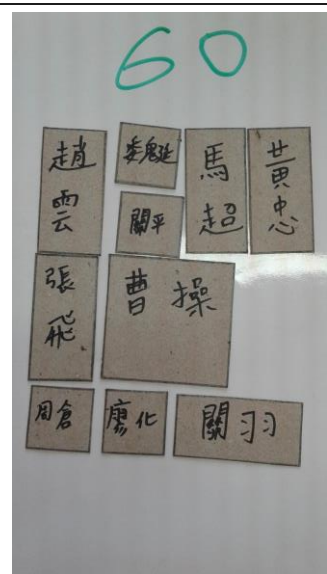 60
趙雲
魏延
馬超
黃忠
關平
張飛
曹操
周倉
廖化
關羽